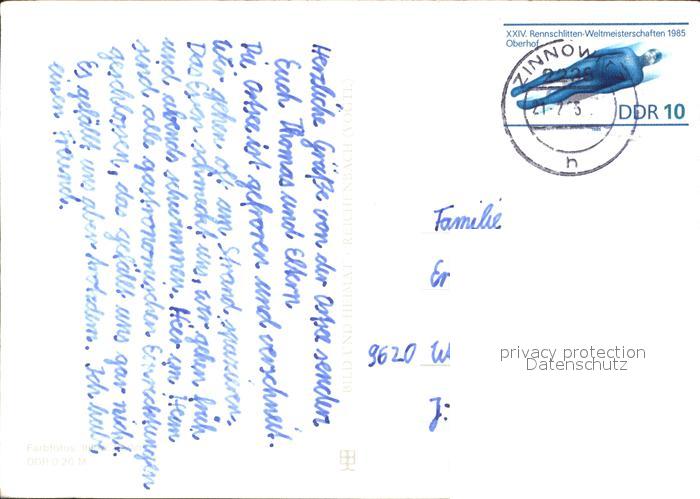 Herzliche Grüße von der Ostsee senden
Euch Thomas und Eltern
Die Ostsee ist gefroren und verschneit.
Wir gehen oft am Strand spazieren.
Das Essen schmeckt uns, wir gehen früh
und abends schwimmen. Hier im Heim
sind alle gastronomischen Einrichtungen
geschlossen, das gefällt uns gar nicht.
Es gefällt uns aber trotzdem. Ich habe
einen Freund.
Farbfotos:
DDR 0,20 M
BILD UND HEIMAT · REICHENBACH (VOGTL)
XXIV. Rennschlitten-Weltmeisterschaften 1985
Oberhof
DDR 10
ZINNOW
h
Familie
Er
9620 W
privacy protection
Datenschutz